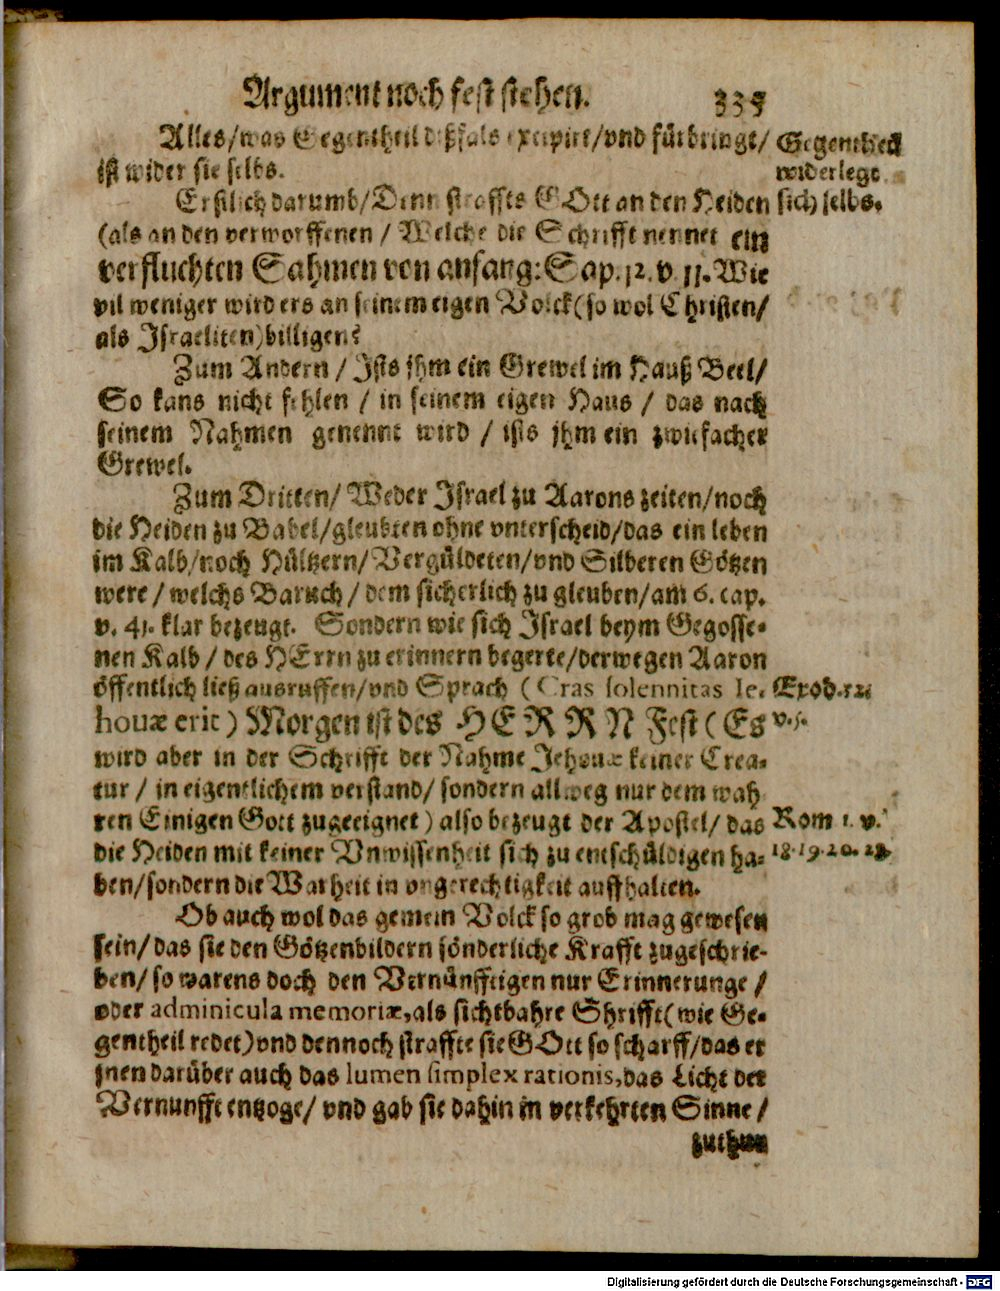 Argument noch fest stehen. 335
Alles/was Gegentheil dißfals excipirt/vnd fürbringt/
ist wider sie selbs.
Gegentheil
widerlegt
sich selbs.
Erstlich darumb/Denn straffts GOtt an den Heiden
(als an den verworffenen / Welche die Schrifft nennet ein
verfluchten Sahmen von anfang: Sap. 12. v. 11. Wie
vil weniger wird ers an seinem eigen Volck(so wol Christen/
als Israeliten)billigen?
Zum Andern / Ists jhm ein Grewel im Hauß Beel/
So kans nicht fehlen / in seinem eigen Haus / das nach
seinem Nahmen genennt wird / ists jhm ein zwiefacher
Grewel.
Zum Dritten/ Weder Israel zu Aarons zeiten/noch
die Heiden zu Babel/gleubten ohne vnterscheid/das ein leben
im Kalb/noch Hültzern/Vergüldeten/vnd Silberen Götzen
were / welchs Baruch / dem sicherlich zu gleuben/am 6. cap.
v. 41. klar bezeugt. Sondern wie sich Israel beym Gegosse-
nen Kalb / des HErrn zu erinnern begerte/derwegen Aaron
öffentlich ließ ausruffen/vnd Sprach (Cras solennitas Ie-
houæ erit) Morgen ist des HERRN Fest (Es
Exod. 32.
v. 5.
wird aber in der Schrifft der Nahme Jehouæ keiner Crea-
tur / in eigentlichem verstand/ sondern allweg nur dem wah
ren Einigen Gott zugeeignet) also bezeugt der Apostel/ das
die Heiden mit keiner Vnwissenheit sich zu entschüldigen ha-
ben/sondern die Warheit in vngerechtigkeit auffhalten.
Rom 1. v.
18.19.20.21.
Ob auch wol das gemein Volck so grob mag gewesen
sein/ das sie den Götzenbildern sönderliche Krafft zugeschrie-
ben/ so warens doch den Vernünfftigen nur Erinnerunge /
oder adminicula memoriæ,als sichtbahre Shrifft(wie Ge-
gentheil redet)vnd dennoch straffte sie GOtt so scharff/das er
jnen darüber auch das lumen simplex rationis,das Licht der
Vernunfft entzoge/ vnd gab sie dahin in verkehrten Sinne /
zuthun
Digitalisierung gefördert durch die Deutsche Forschungsgemeinschaft - DFG